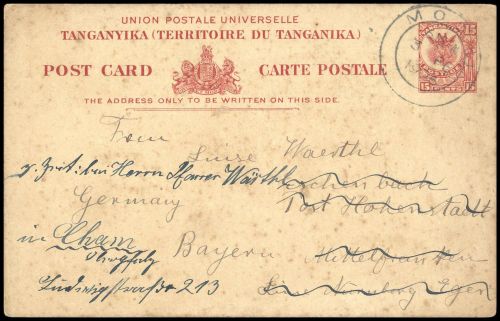 UNION POSTALE UNIVERSELLE
TANGANYIKA (TERRITOIRE DU TANGANIKA)
POST CARD CARTE POSTALE
THE ADDRESS ONLY TO BE WRITTEN ON THIS SIDE.
15 15
15 15
MO
Frau
Luise Waerthl
z. Zeit: bei Herrn Pfarrer Wärthl
Eschenbach
Germany Post Hohenstadt
in Cham Bayern Mittelfranken
Oberpfalz
Ludwigstraße 213 Nürnberg Eger